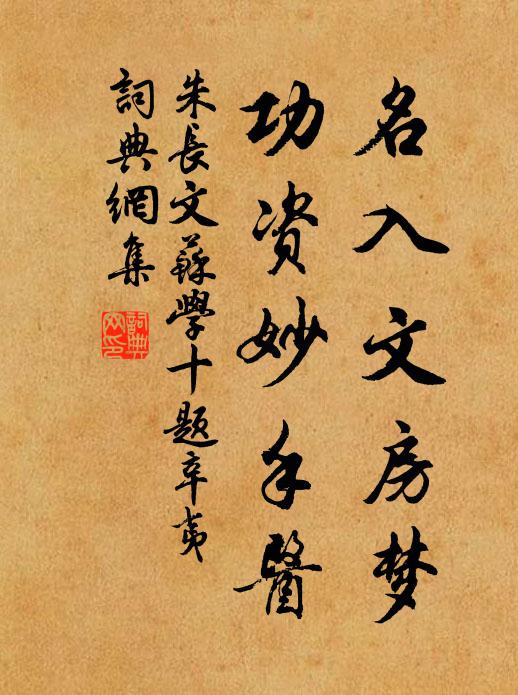 名入文房梦
功资妙手醫
朱長文蘇學十題辛夷
詞典網集
詞典網印